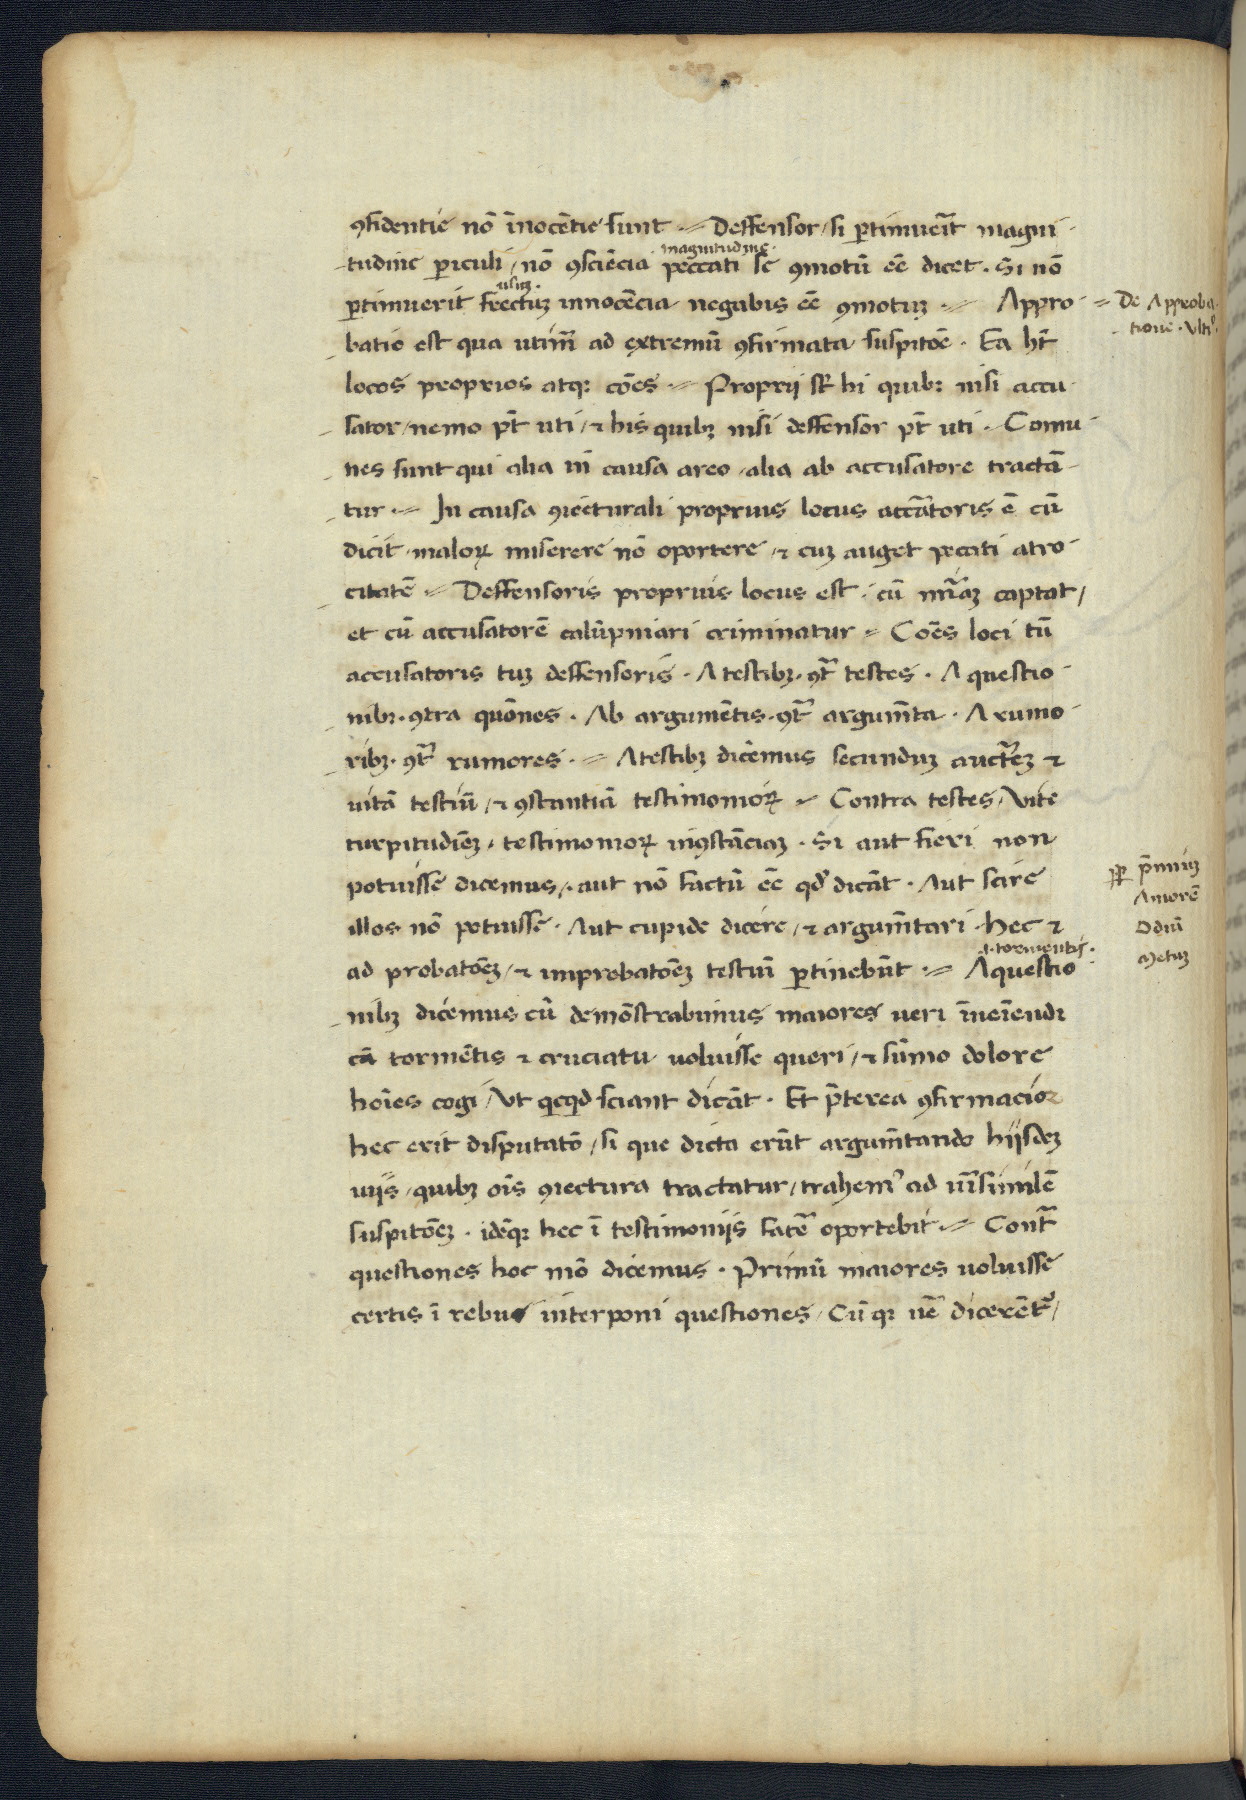 ꝯfidentie nō īnocētie sunt Deffensor / si ꝑtimuerit magni
magnitudine
tudine ꝑiculi / nō ꝯsciēcia peccati se ꝯmotū eē dicet . Si nō
ꝑtimuerit frectuꝫ innocēcia negabis eē ꝯmotuꝫ Appro
= De Approba
tione . Ulti⁹
batio est qua utim̄ ad extremū ꝯfirmata suspitōe . Ea hꝫt
locos proprios atqꝫ cōēs Proprij sꝉ hi quibꝫ nisi accu
sator / nemo pt̄ uti / ⁊ his quibꝫ nisi deffensor pt̄ uti . Comu
nes sunt qui alia in causa a reo . alia ab accusatore tractā
tur . In causa ꝯiecturali proprius locus accātoris ē cū
dicit malorꝝ miserere nō oportere / ⁊ cuꝫ auget pecati atro
citatē Deffensoris proprius locus est . cū mīaꝫ captat /
et cū accusatorē calūpniari criminatur Coēs loci tū
accusatoris tuꝫ deffensoris . A testibꝫ . ꝯt̄ testes . A questio
nibꝫ . ꝯtra quōnes . Ab argumētis . ꝯt̄ argum̄ta . A rumo
ribꝫ . ꝯt̄ rumores . A testibꝫ dicemus secunduꝫ auct̄eꝫ ⁊
uitā testiū / ⁊ ꝯstantiā testimoniorꝝ Contra testes / Vite
turpitudīeꝫ / testimoniorꝝ inꝯstāciaꝫ . Si aut fieri non
potuisse dicemus / . aut nō factū eē qđ dicāt . Aut scire
p̄miuꝫ
Amorē
illos nō potuisse . Aut cupide dicere / ⁊ argum̄tari . hec ⁊
Odiū
.i. tormentis .
ad probatōeꝫ / ⁊ improbatōeꝫ testiū ꝑtinebūt . A questio
Metuꝫ
nibꝫ dicemus cū demōstrabimus maiores ueri īueīendi
cā tormētis ⁊ cruciatu uoluisse queri / ⁊ sūmo dolore
hoīes cogi / Ut qcqd sciant dicāt . Et p̄terea ꝯfirmacior
hec erit disputatō / si que dicta erūt argum̄tando hijsdeꝫ
uijs / quibꝫ oīs ꝯiectura tractatur / trahem⁹ ad uīsimilē
suspitōeꝫ . idēqꝫ hec ī testimonijs facē oportebit . Cont̄
questiones hoc mō dicemus . Primū maiores uoluisse
certis ī rebus interponi questiones / Cū qꝫ uē dicerēt᷑ /